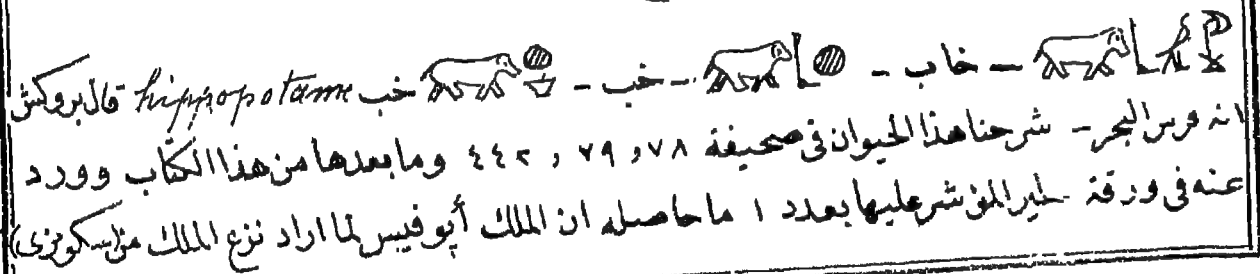 خاب - خب - خب hippopotame قال بروكش
انه فرس البحر - شرحنا هذا الحيوان فى صحيفة ٧٨ و ٧٩ و ٤٤٢ وما بعدها من هذا الكتاب وورد
عنه فى ورقة المؤشر عليها بعدد ١ ما حاصله ان الملك أپوفيس لما اراد نزع الملك من